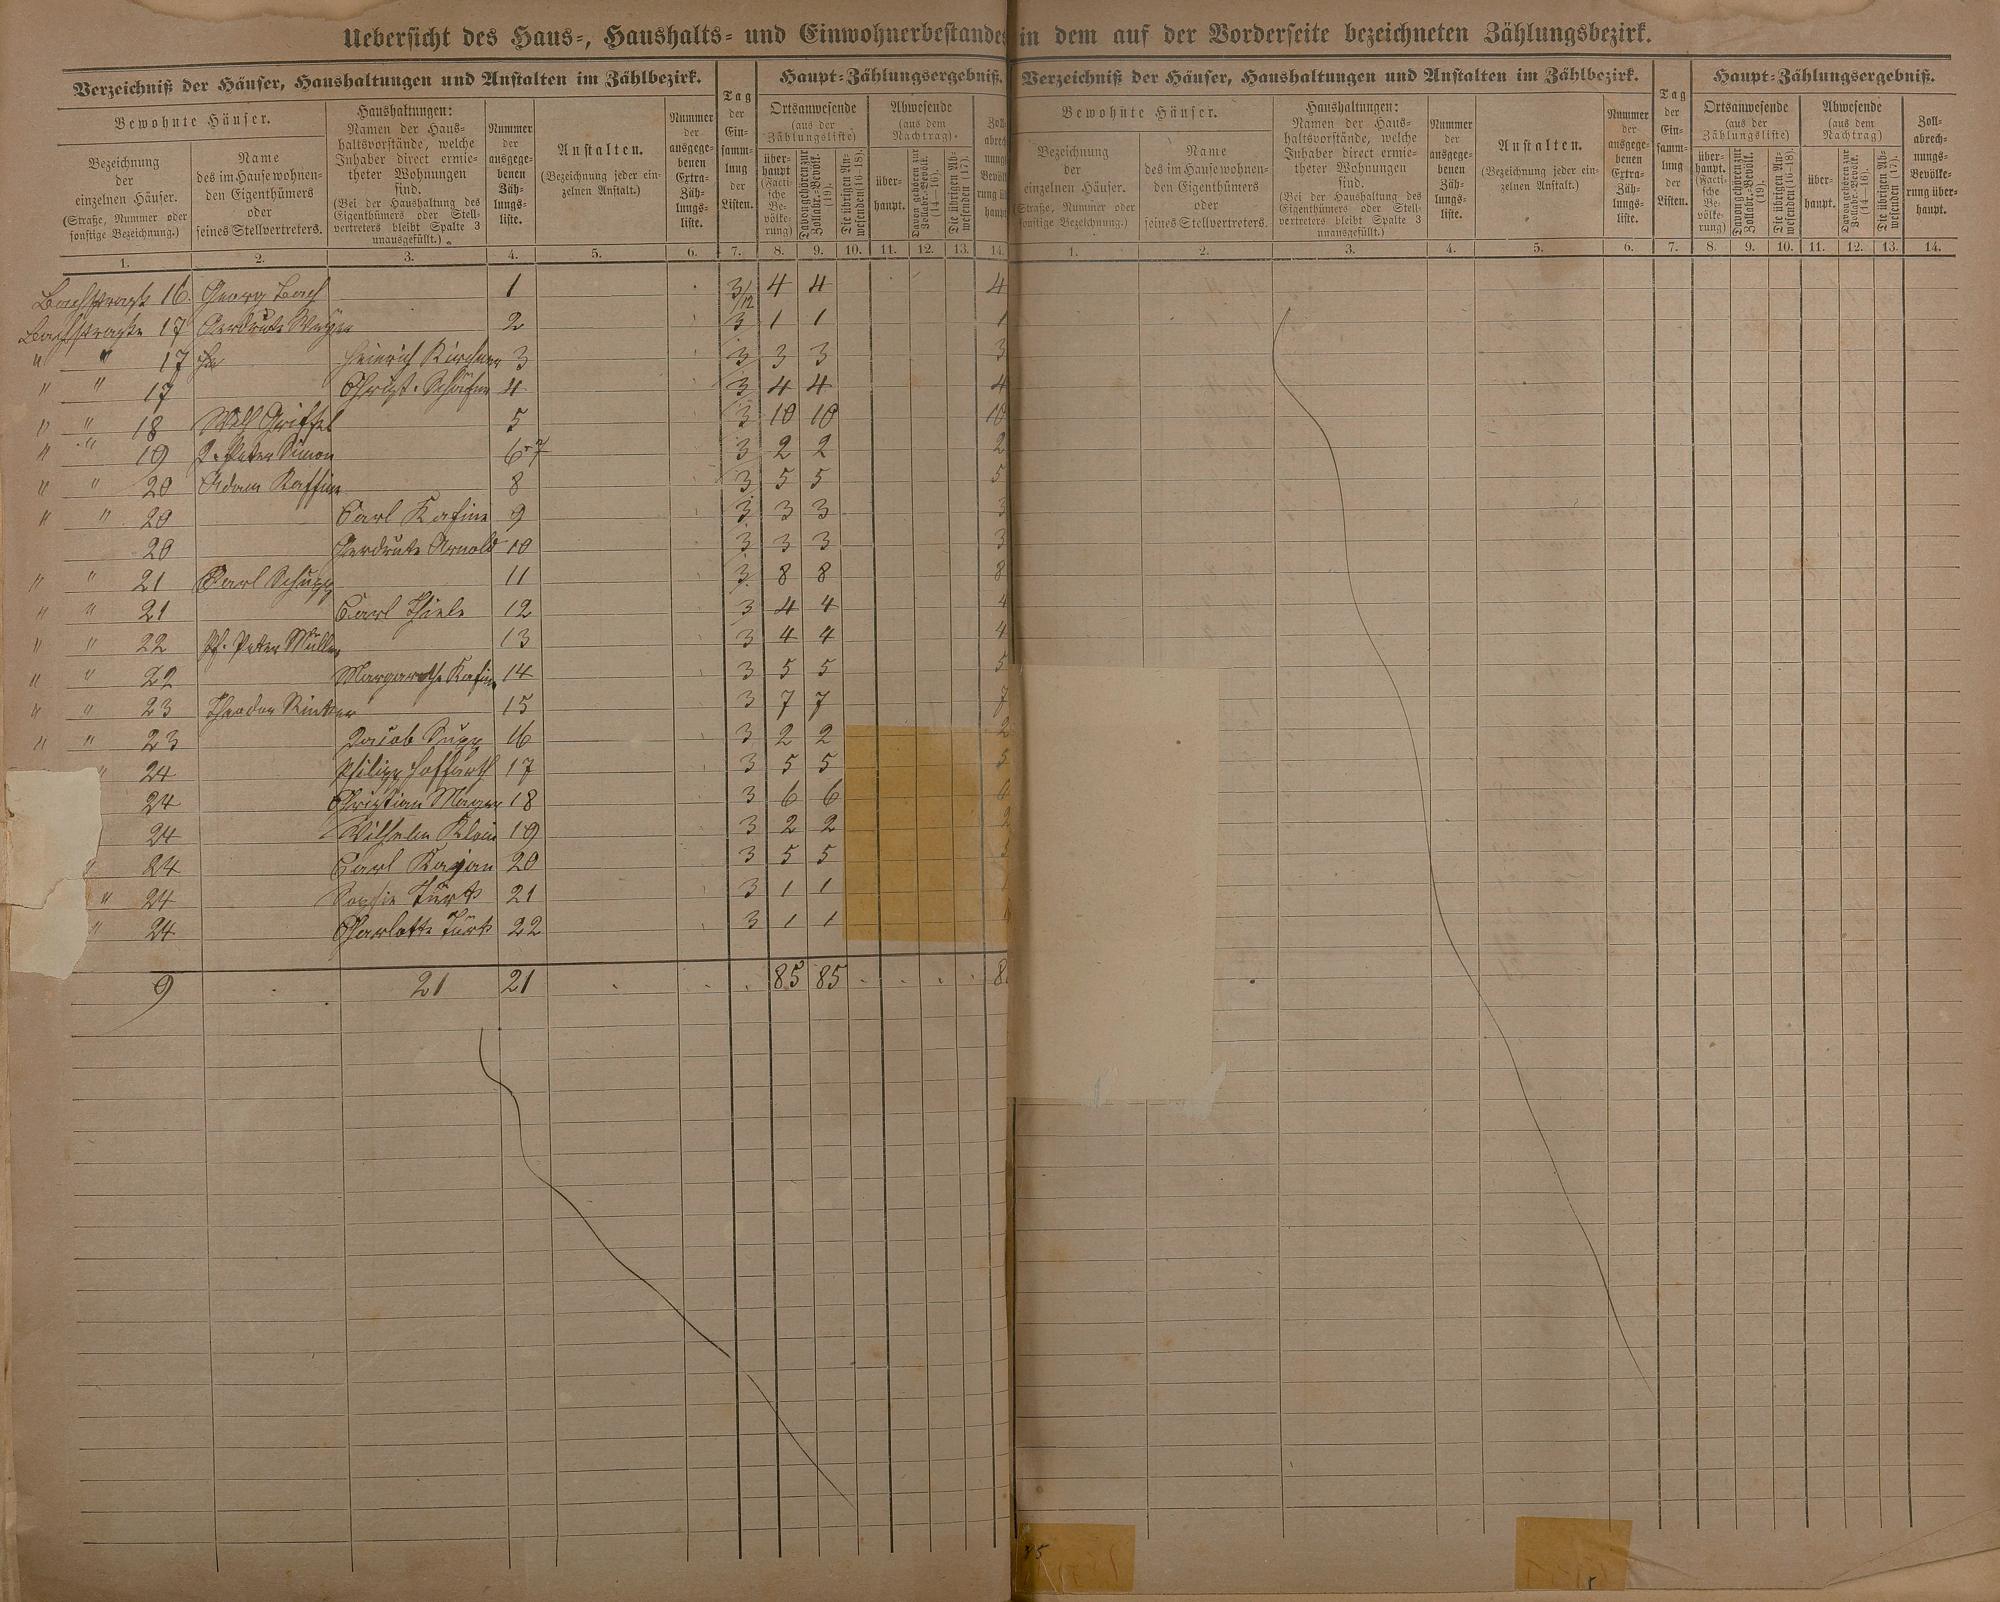 Uebersicht des Haus-, Haushalts- und Einwohnerbestandes in dem auf der Vorderseite bezeichneten Zählungsbezirk.
Verzeichniß der Häuser, Haushaltungen und Anstalten im Zählbezirk.
Bewohnte Häuser.
Bezeichnung
der
einzelnen Häuser.
(Straße, Nummer oder
sonstige Bezeichnung.)
Name
des im Hause wohnen-
den Eigenthümers
oder
seines Stellvertreters.
Haushaltungen:
Namen der Haus-
haltsvorstände, welche
Inhaber direct ermie-
theter Wohnungen
sind.
(Bei der Haushaltung des
Eigenthümers oder Stell-
vertreters bleibt Spalte 3
unausgefüllt.)
Nummer
der
ausgege-
benen
Zäh-
lungs-
liste.
Anstalten.
(Bezeichnung jeder ein-
zelnen Anstalt.)
Nummer
der
ausgege-
benen
Extra-
Zäh-
lungs-
liste.
Tag
der
Ein-
samm-
lung
der
Listen.
Haupt-Zählungsergebniß.
Ortsanwesende
(aus der
Zählungsliste)
über-
haupt
(Facti-
sche
Be-
völke-
rung)
Davon gehören zur
Zollabr.-Bevölk.
(19).
Die übrigen An-
wesenden (16-18).
Abwesende
(aus dem
Nachtrag).
über-
haupt.
Davon gehören zur
Zollabr.-Bevölk.
(14-16).
Die übrigen Ab-
wesenden (17).
1. 2. 3. 4. 5. 6. 7. 8. 9. 10. 11. 12. 13. 14.
Bachstraße 16. Georg Bach 1 3/12 4 4 4
Bachstraße 17 Gerdrute 2 3 1 1 1
" " 17 Heinrich Kirchner 3 3 3 3 3
" " 17 Christ. Schäfer 4 3 4 4 4
" " 18 Wilh Griffel 5 3 10 10 10
" " 19 J. Peter Simon 6-7 3 2 2 2
" " 20 Adam Kaffine 8 3 5 5 5
" " 20 Carl Kafine 9 3 3 3 3
20 Gerdrute Arnold 10 3 3 3 3
" " 21 Carl Schupp 11 3 8 8 8
" " 21 Carl Thiele 12 3 4 4 4
" " 22 Ph. Peter Müller 13 3 4 4 4
" " 22 Margarethe Kafine 14 3 5 5 5
" " 23 Theodor Rinker 15 3 7 7 7
" " 23 Jacob Supp 16 3 2 2 2
" 24 Philipp Hoffarth 17 3 5 5 5
24 Christian Mayer 18 3 6 6 6
24 Wilhelm Klein 19 3 2 2 2
" 24 Carl Kajan 20 3 5 5 5
" 24 Sophie Türk 21 3 1 1
" 24 Charlotte Türk 22 3 1 1
9 21 21 85 85 8
Verzeichniß der Häuser, Haushaltungen und Anstalten im Zählbezirk.
Bewohnte Häuser.
Bezeichnung
der
einzelnen Häuser.
(Straße, Nummer oder
sonstige Bezeichnung.)
Name
des im Hause wohnen-
den Eigenthümers
oder
seines Stellvertreters.
Haushaltungen:
Namen der Haus-
haltsvorstände, welche
Inhaber direct ermie-
theter Wohnungen
sind.
(Bei der Haushaltung des
Eigenthümers oder Stell-
vertreters bleibt Spalte 3
unausgefüllt.)
Nummer
der
ausgege-
benen
Zäh-
lungs-
liste.
Anstalten.
(Bezeichnung jeder ein-
zelnen Anstalt.)
Nummer
der
ausgege-
benen
Extra-
Zäh-
lungs-
liste.
Tag
der
Ein-
samm-
lung
der
Listen.
Haupt-Zählungsergebniß.
Ortsanwesende
(aus der
Zählungsliste)
über-
haupt.
(Facti-
sche
Be-
völke-
rung)
Davon gehören zur
Zollabr.-Bevölk.
(19).
Die übrigen An-
wesenden (16-18).
Abwesende
(aus dem
Nachtrag)
über-
haupt.
Davon gehören zur
Zollabr.-Bevölk.
(14-16).
Die übrigen Ab-
wesenden (17).
Zoll-
abrech-
nungs-
Bevölke-
rung über-
haupt.
1. 2. 3. 4. 5. 6. 7. 8. 9. 10. 11. 12. 13. 14.